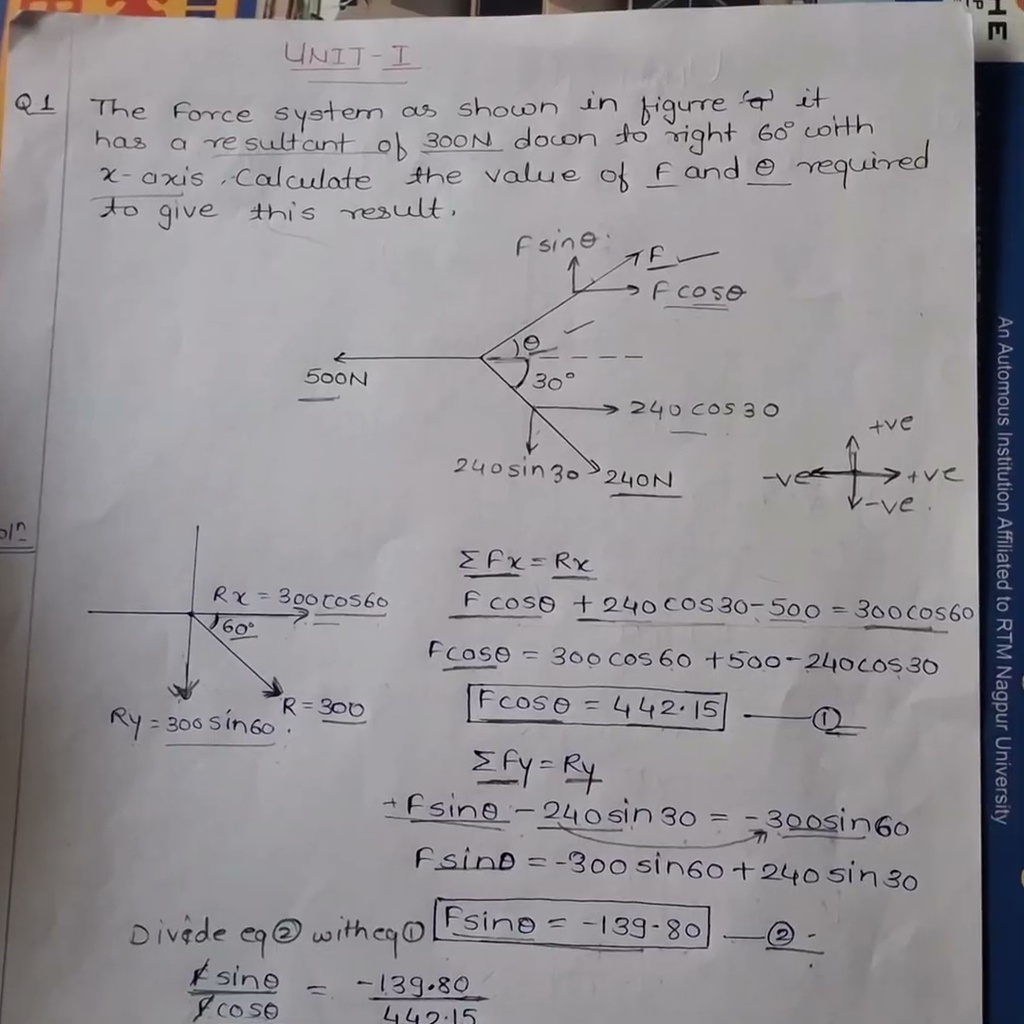 UNIT-I
Q1 The Force system as shown in figure it
has a resultant of 300N down to right 60° with
x-axis. Calculate the value of F and θ required
to give this result.
Fsinθ
F
Fcosθ
θ
500N
30°
240 cos30
240 sin30
240N
+ve
-ve
+ve
-ve.
Rx = 300cos60
60°
R = 300
Ry = 300sin60.
ΣFx = Rx
Fcosθ + 240cos30 - 500 = 300cos60
Fcosθ = 300cos60 + 500 - 240cos30
Fcosθ = 442.15 ①
ΣFy = Ry
+Fsinθ - 240sin30 = -300sin60
Fsinθ = -300sin60 + 240sin30
Divide eq② with eq① Fsinθ = -139.80 ②
Fsinθ / Fcosθ = -139.80 / 442.15
HE
An Automous Institution Affiliated to RTM Nagpur University